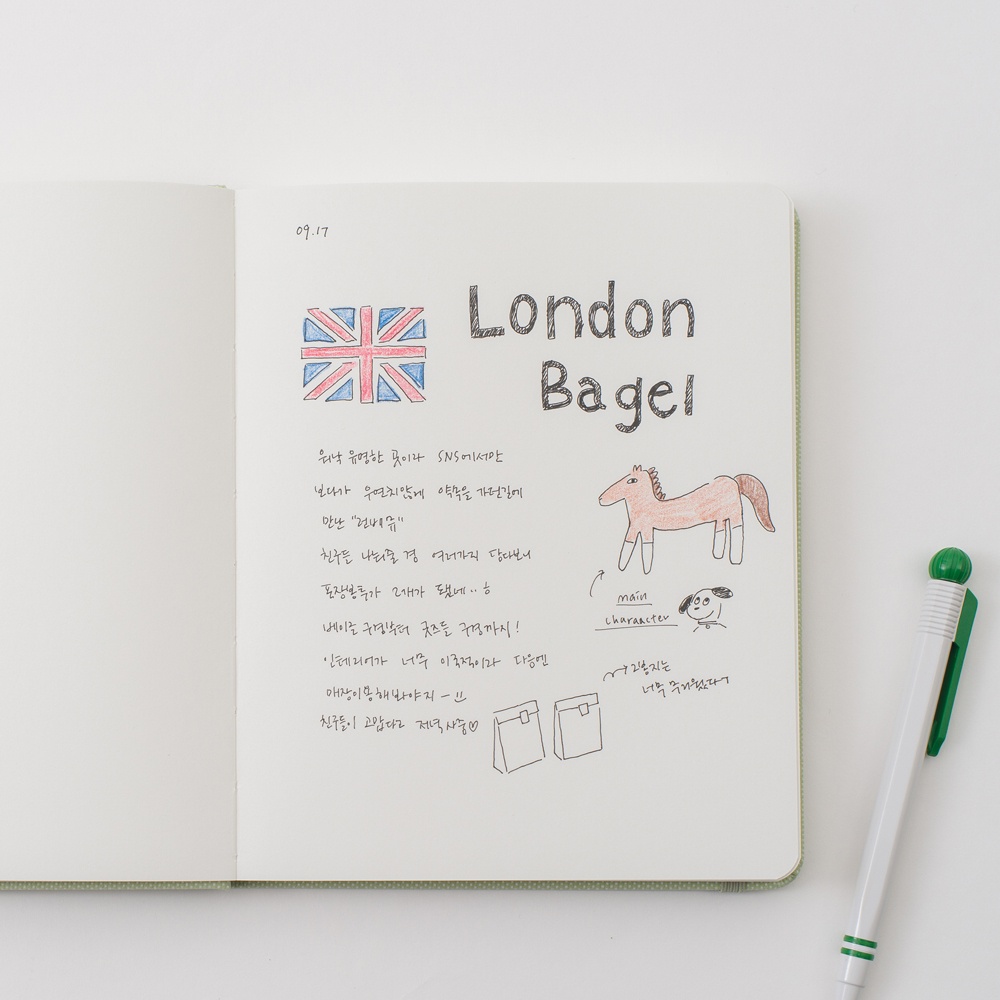 09.17
London
Bagel
워낙 유명한 곳이라 SNS에서만
보다가 우연치않게 약속을 가던길에
만난 "런베뮤"
친구들 나눠줄 겸 여러가지 담다보니
포장봉투가 2개가 됐네..ㅎ
베이글 구경부터 굿즈들 구경까지!
인테리어가 너무 이국적이라 다음엔
매장이용해봐야지 -
친구들이 고맙다고 저녁사줌♡
main
character
2봉지는
너무 무거웠다구